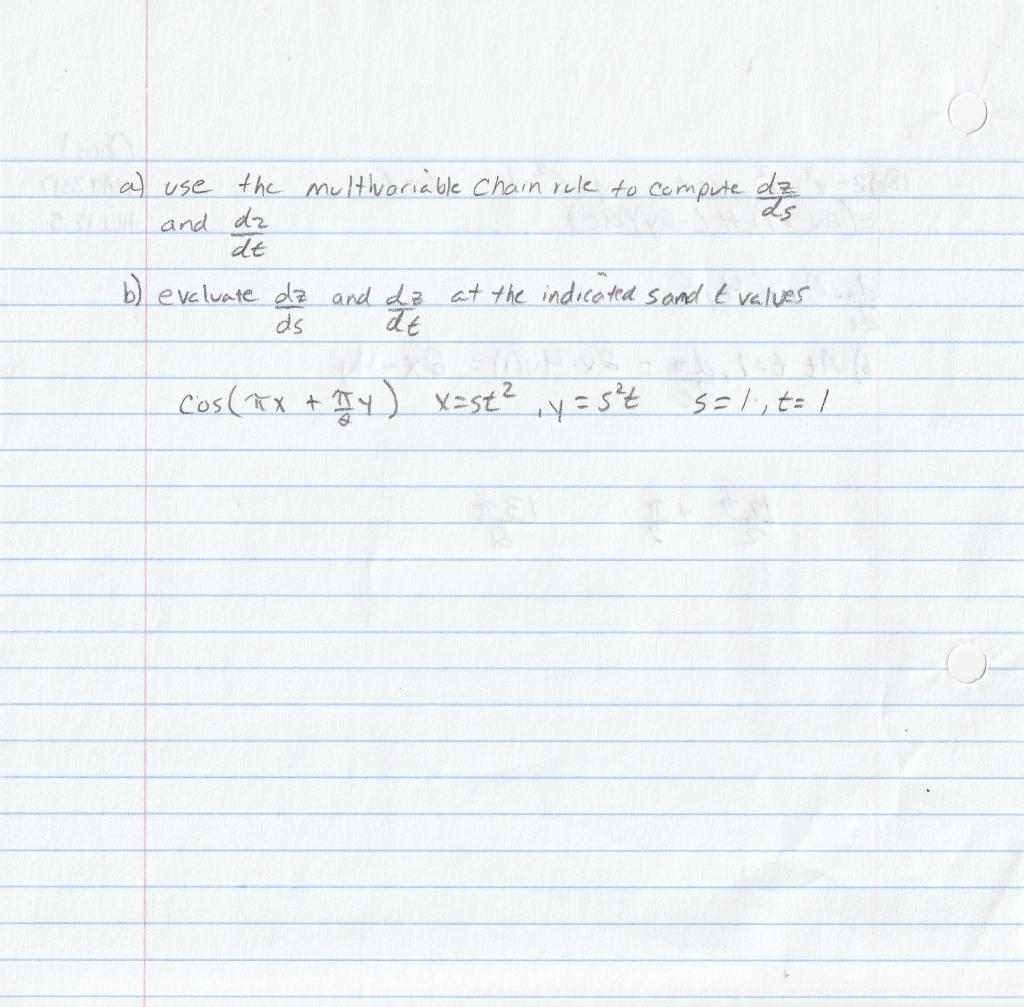 a) use the multivariable Chain rule to compute dz/ds
and dz/dt
b) evaluate dz/ds and dz/dt at the indicated s and t values
cos(πx + π/2 y) x=st² , y=s²t s=1, t=1